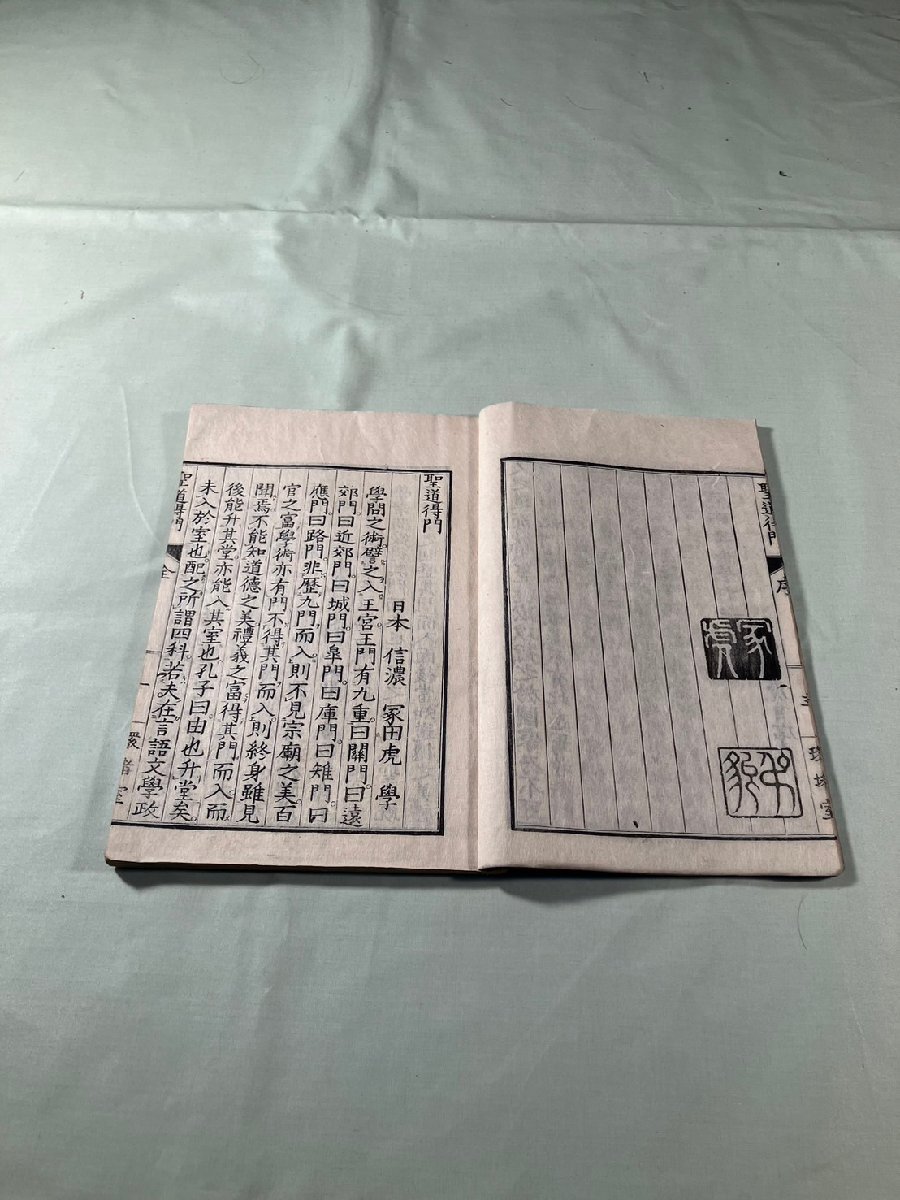 聖道得門
序
冢虎
聖道得門
日本 信濃 冢田虎 學
學問之術譬之入王宮王門有九重曰關門曰遠
郊門曰近郊門曰城門曰皐門曰庫門曰雉門曰
應門曰路門非歷九門而入則不見宗廟之美百
官之富學術亦有門不得其門而入則終身雖見
聞焉不能知道德之美禮義之富得其門而入而
後能升其堂亦能入其室也孔子曰由也升堂矣
未入於室也配之所謂四科若夫在言語文學政
聖道得門
全
一
環堵室